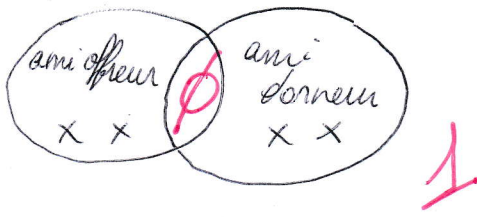 ami offreur
ami
donneur
x x
x x
∅
1.